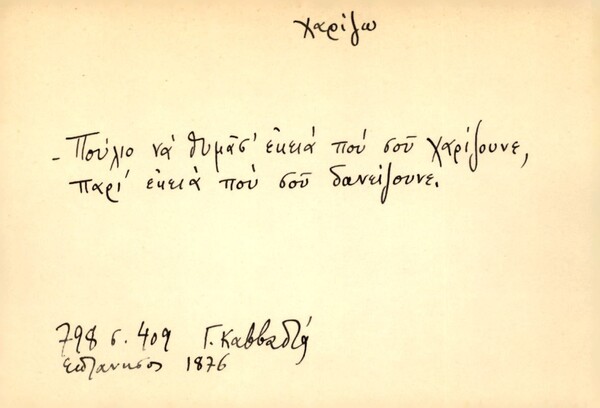 χαρίζω
- Πούλιο νὰ θυμᾶσ' ἐκειὰ ποὺ σοῦ χαρίζουνε,
παρὶ ἐκειὰ ποὺ σοῦ δανείζουνε.
798 σ. 409 Γ. Καββαδία
Επτάνησος 1876